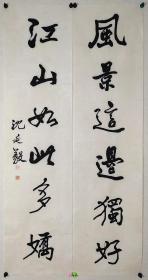 風景這邊獨好
江山如此多嬌
沈延毅